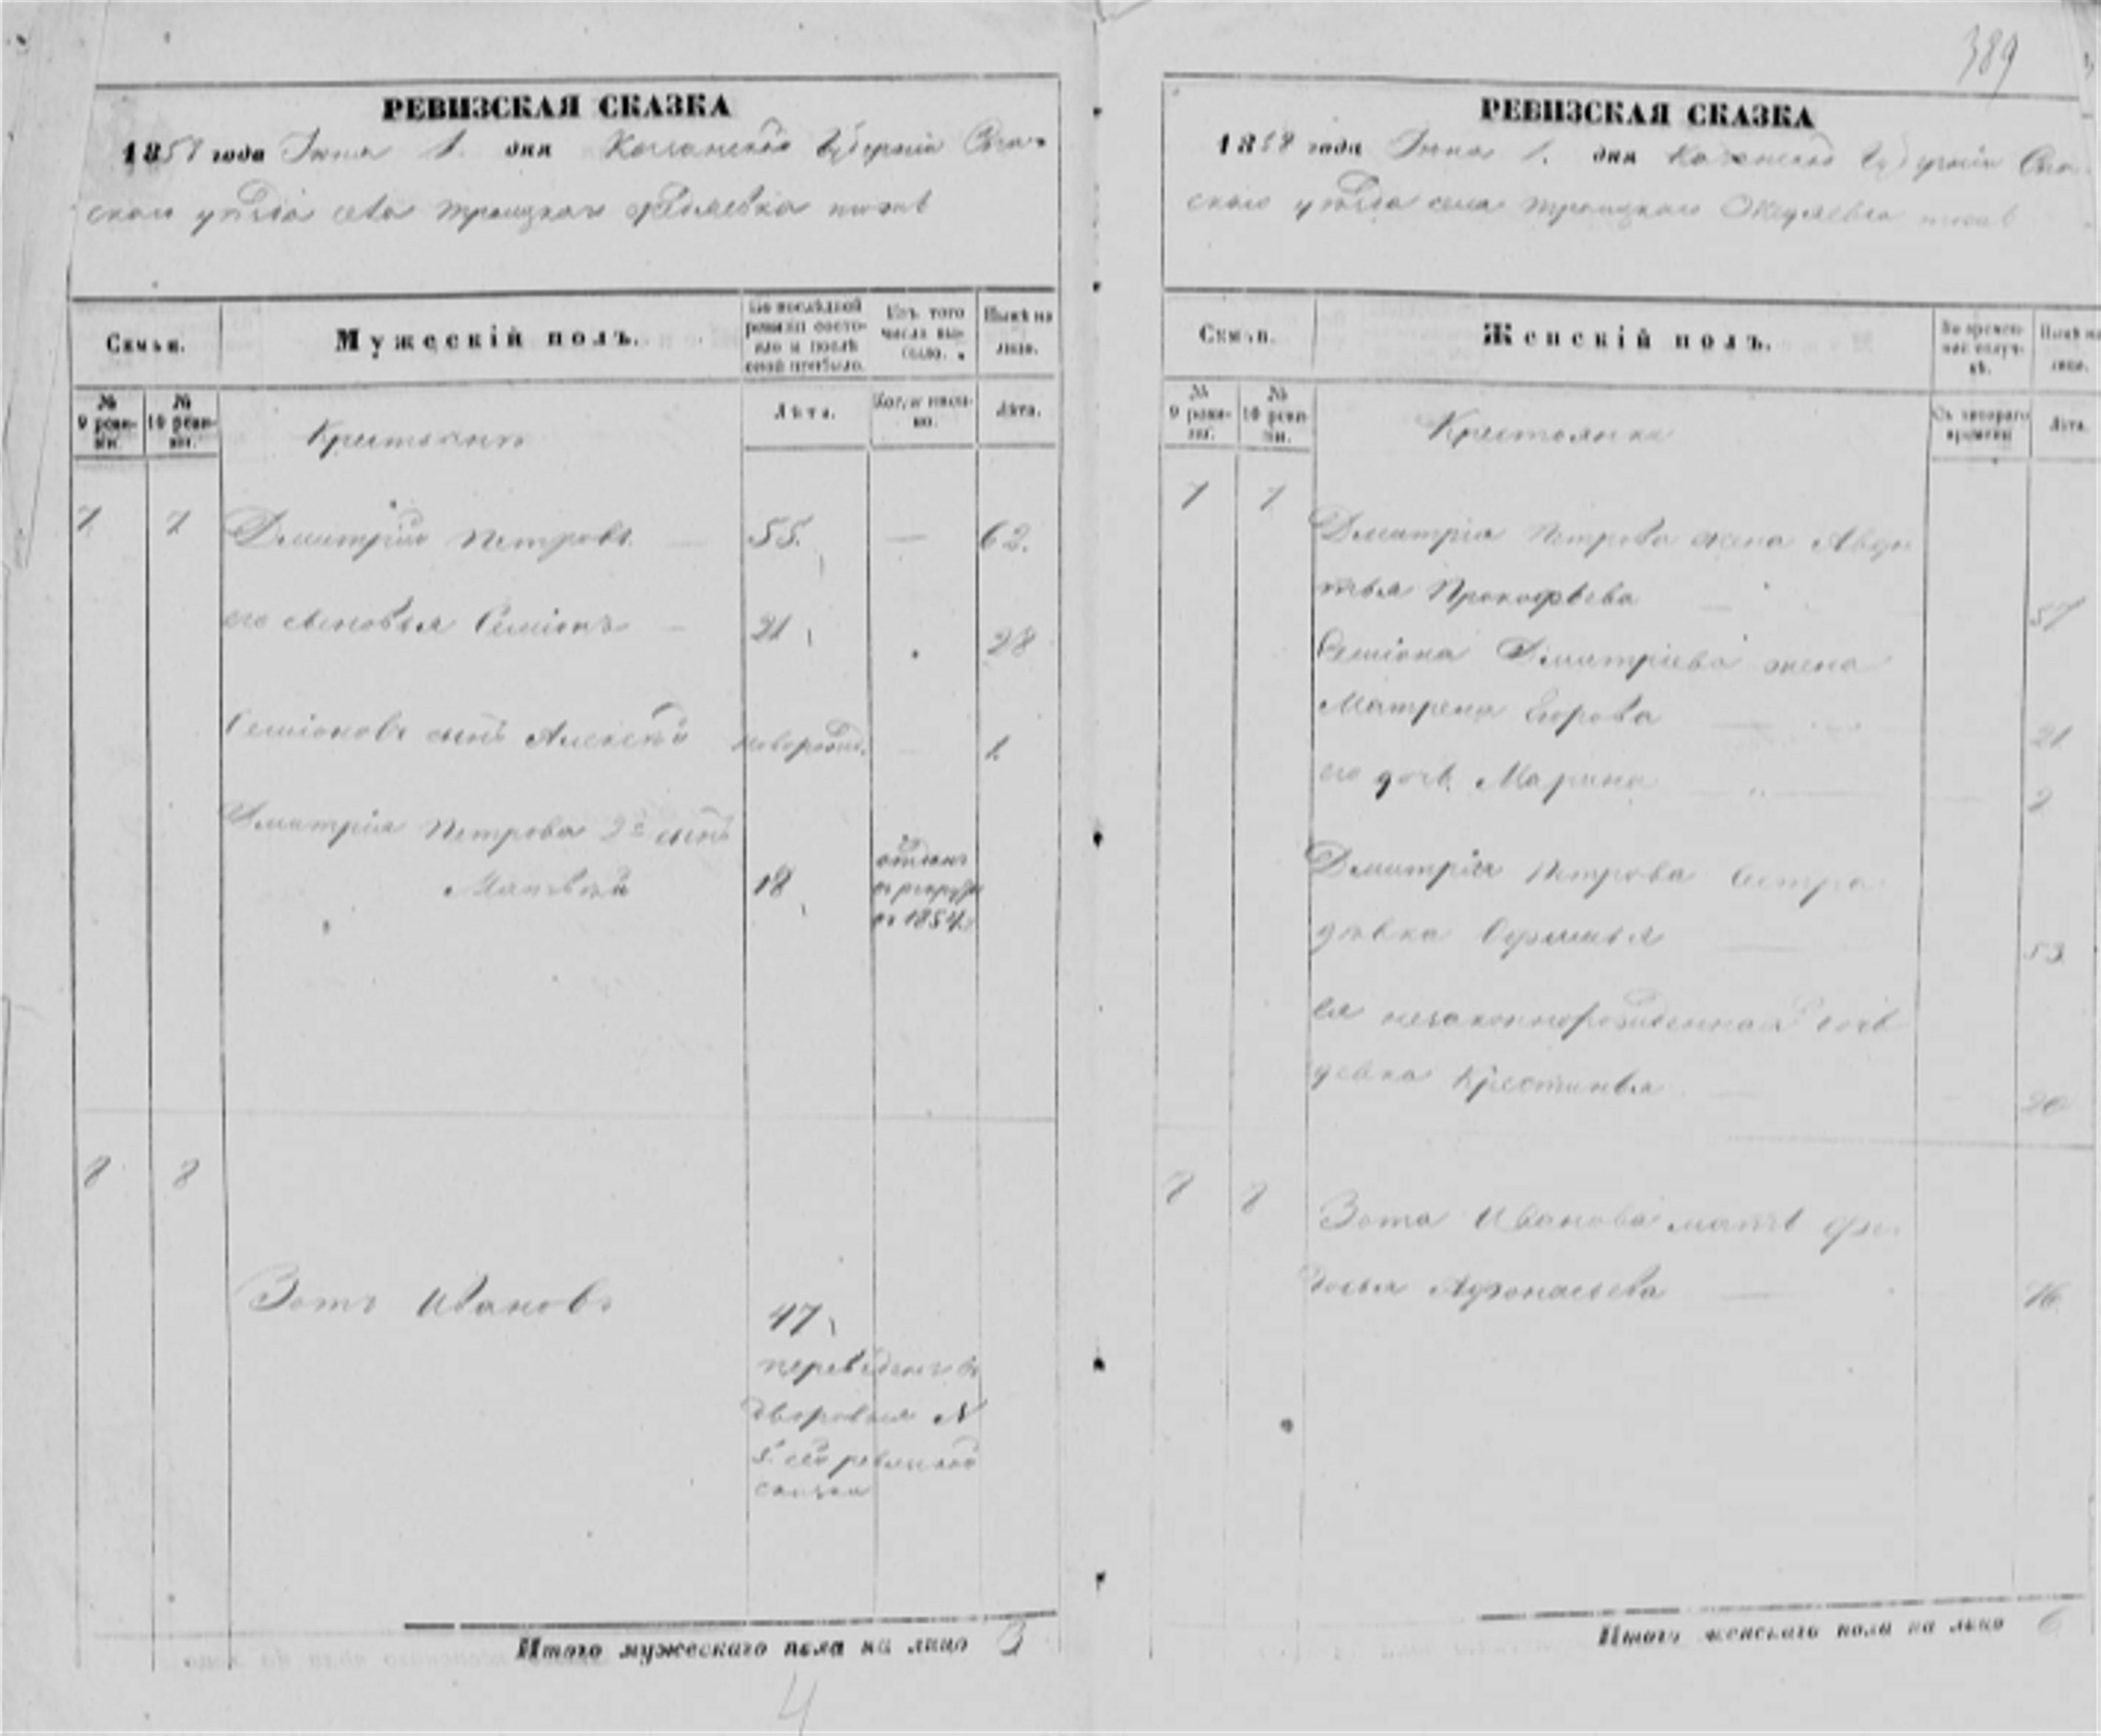 389
РЕВИЗСКАЯ СКАЗКА
1858 года Июня 1. дня Казанской Губернiи Спас-
скаго уѣзда села Троицкаго
Семьи.
Мужескiй полъ.
По послѣдней ревизiи состо-
яло и послѣ оной прибыло.
Изъ того числа вы-
было.
Нынѣ на лицо.
№ 9 реви-
зiи.
№ 10 реви-
зiи.
Лѣта.
Когда имен-
но.
Лѣта.
Крестьянъ
7 7 Дмитрiй Петровъ. — 55. — 62.
его сыновья Семiонъ — 21 28
Семiоновъ сынъ Алексѣй новорожд. 1.
Дмитрiя Петрова 2й сынъ
Матвѣй 18 отданъ
въ рекруты
въ 1854 г.
8 8
Зотъ Ивановъ 47
переведенъ въ
дворовыя №
5. сей ревизской
сказки
Итого мужескаго пола на лицо 3
4
РЕВИЗСКАЯ СКАЗКА
1858 года Июня 1. дня Казанской Губернiи Спас-
скаго уѣзда села Троицкаго
Семьи.
Женскiй полъ.
Во времен-
ной отлуч-
кѣ.
Нынѣ на
лицо.
№ 9 реви-
зiи.
№ 10 реви-
зiи.
Съ котораго времени
Лѣта.
Крестьянка
7 7 Дмитрiя Петрова жена Авдо-
тья Прокофьева — 57
Семiона Дмитрiева жена
Матрена Егорова 21
его дочь Марина 2
Дмитрiя Петрова сестра
дѣвка 53
ея незаконнорожденная дочь
девка Крестинья 20
8 8 Зота Иванова мать Фе-
досья Афонасьева — 76.
Итого женскаго пола на лицо 6